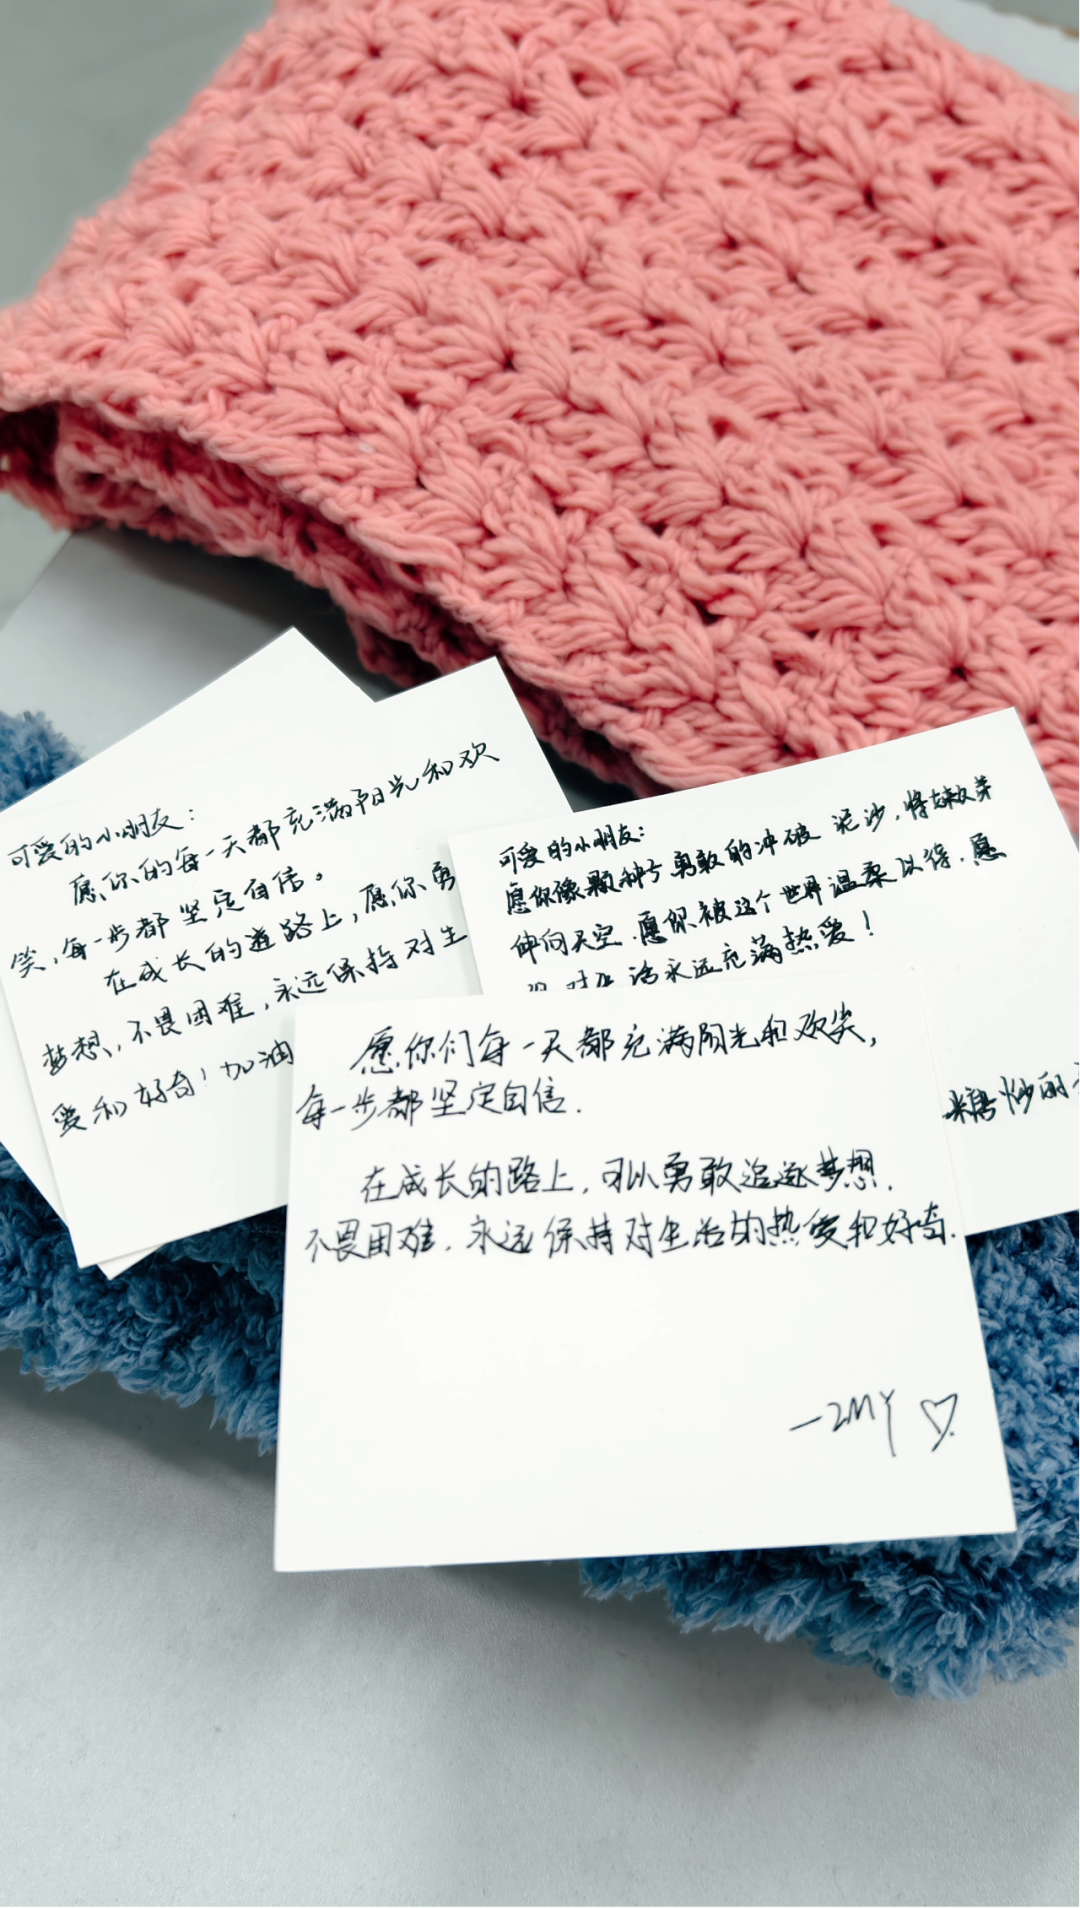 可爱的小朋友：
愿你的每一天都充满阳光和欢
笑，每一步都坚定自信。
在成长的道路上，愿你勇
梦想，不畏困难，永远保持对生
爱和好奇！加油
可爱的小朋友：
愿你像颗种子勇敢的冲破泥沙，将嫩芽
伸向天空，愿你被这个世界温柔以待，愿
你对生活永远充满热爱！
糖炒的
愿你们每一天都充满阳光和欢笑，
每一步都坚定自信.
在成长的路上，可以勇敢追逐梦想.
不畏困难，永远保持对生活的热爱和好奇.
—ZMY ♡